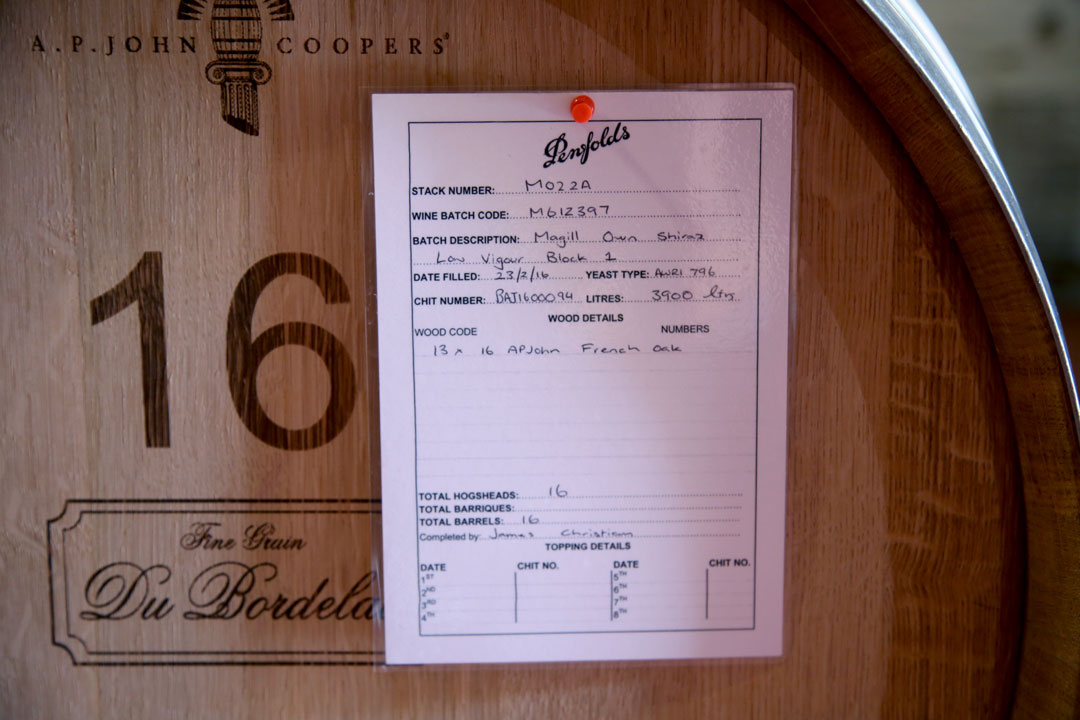 A.P. JOHN COOPERS
16
Fine Grain
Du Bordela
Penfolds
STACK NUMBER: M022A
WINE BATCH CODE: M612397
BATCH DESCRIPTION: Magill Own Shiraz
Low Vigour Block 1
DATE FILLED: 23/2/16 YEAST TYPE: AWRI 796
CHIT NUMBER: BAJ1600094 LITRES: 3900 ltrs
WOOD DETAILS
WOOD CODE NUMBERS
13 x 16 APJohn French Oak
TOTAL HOGSHEADS: 16
TOTAL BARRIQUES:
TOTAL BARRELS: 16
Completed by: James Christian
TOPPING DETAILS
DATE CHIT NO. DATE CHIT NO.
1ST 5TH
2ND 6TH
3RD 7TH
4TH 8TH